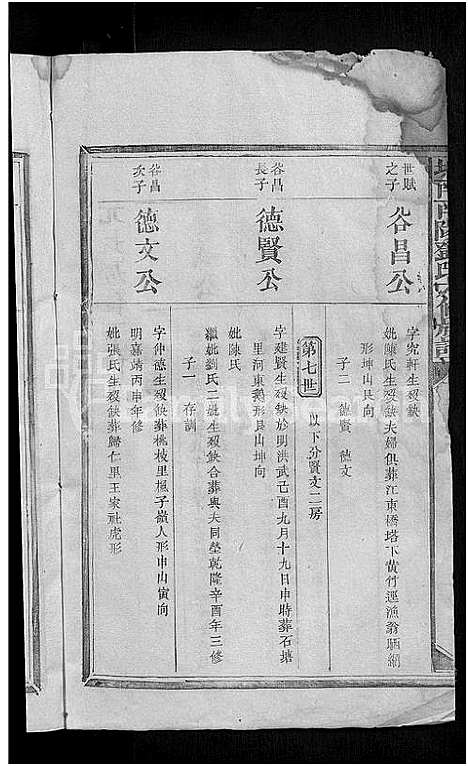 世賦
之子
谷昌公
字究軒生歿缺
妣陳氏生歿缺夫婦俱葬江東橋塔下黃竹逕漁翁晒網
形坤山艮向
子二 德賢 德文
第七世 以下分賢文二房
谷昌
長子
德賢公
字建賢生歿缺於明洪武己酉九月十九日申時葬石塘
里河東鵝形艮山坤向
妣陳氏
繼妣劉氏二妣生歿缺合葬與夫同塋乾隆辛酉年三修
子一 存訓
谷昌
次子
德文公
字仲德生歿缺葬桃枝里楓子嶺人形申山寅向
明嘉靖丙申年修
妣張氏生歿缺葬歸仁里王家社虎形